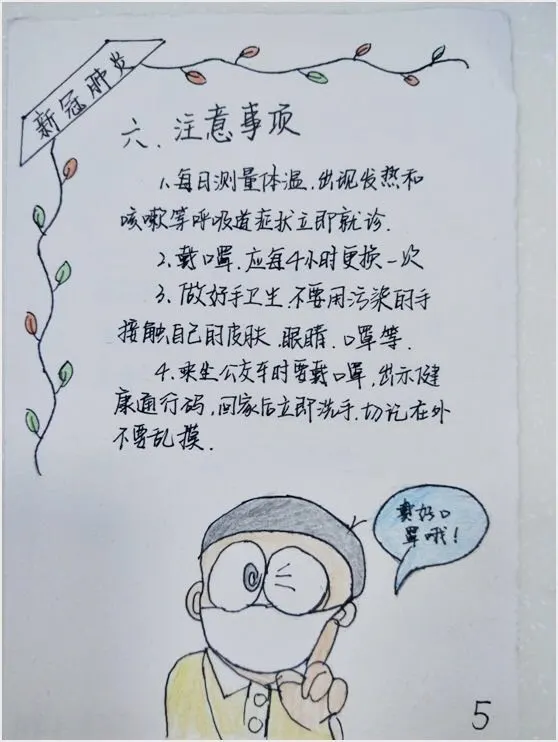 新冠肺炎
六、注意事项
1.每日测量体温,出现发热和
咳嗽等呼吸道症状立即就诊.
2.戴口罩.应每4小时更换一次
3.做好手卫生.不要用污染的手
接触自己的皮肤.眼睛.口罩等.
4.乘坐公交车时要戴口罩,出示健
康通行码,回家后立即洗手.切记在外
不要乱摸.
戴好口
罩哦!
5